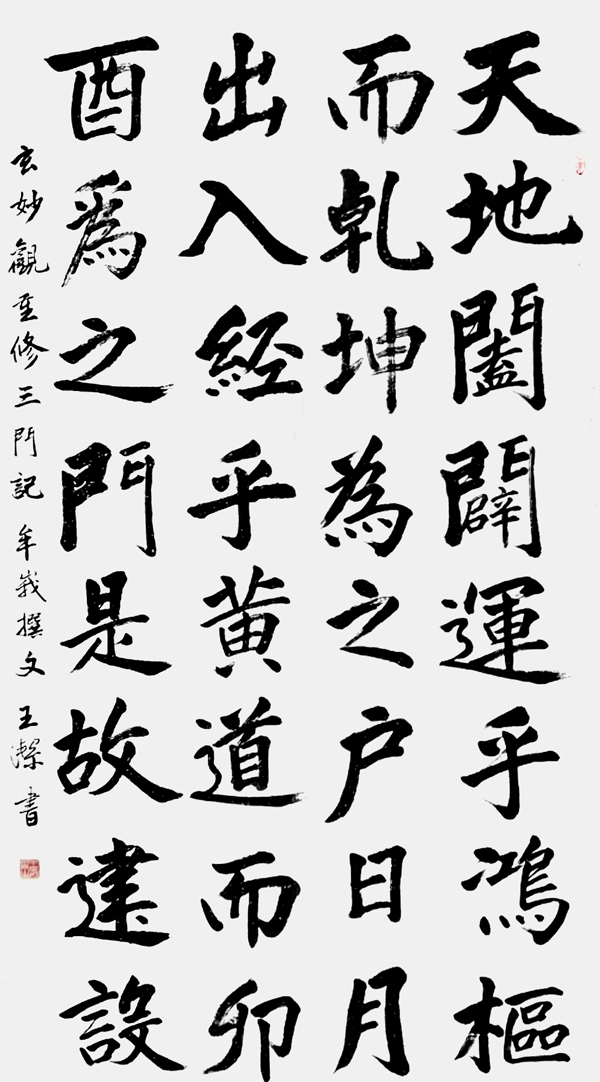 天地闔闢運乎鴻樞
而乾坤為之户日月
出入經乎黄道而卯
酉爲之門是故建設
玄妙觀重修三門記 牟峩撰文 王潔書